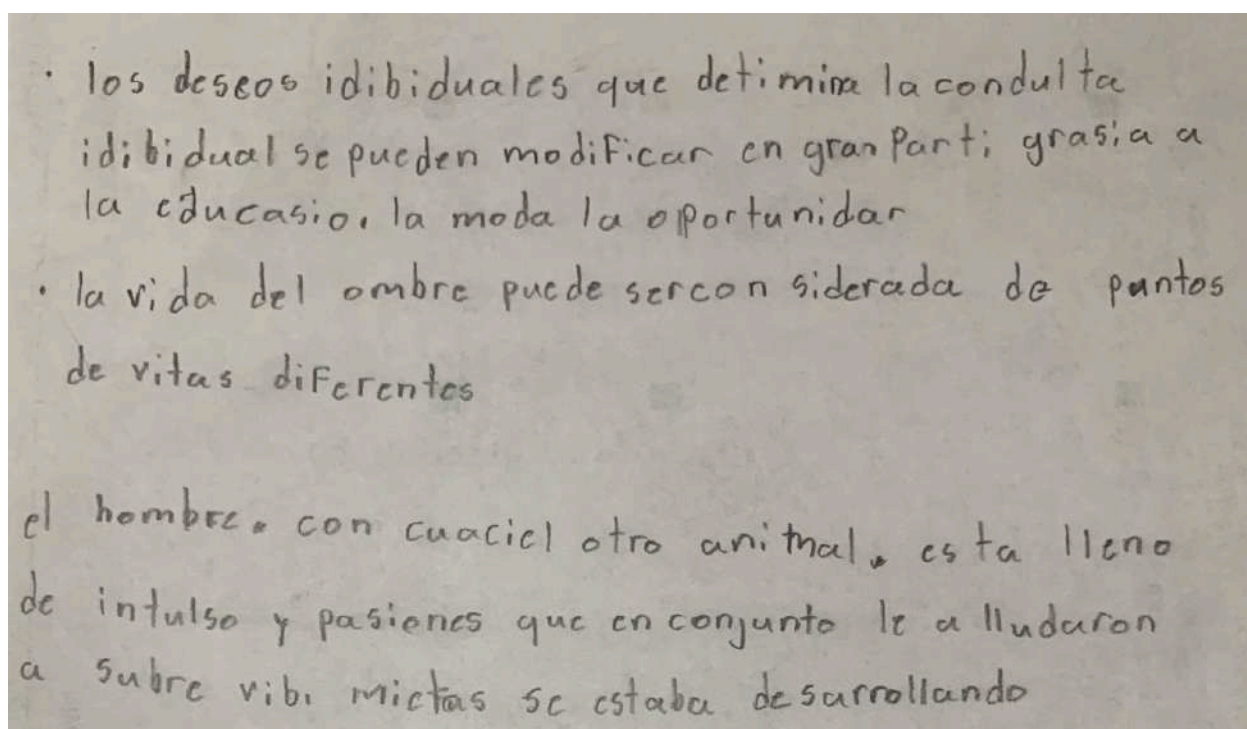 · los deseos idibiduales que detimina la condulta
idibidual se pueden modificar en gran Parti grasia a
la educasio. la moda la oportunidar
· la vida del ombre puede sercon siderada de puntos
de vitas diferentes
el hombre. con cuaciel otro animal. esta lleno
de intulso y pasiones que en conjunto le a lludaron
a subre vibi mictas se estaba desarrollando